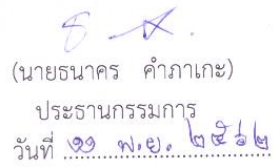 (นายธนาคร คำภาเกะ)
ประธานกรรมการ
วันที่ ๑๑ พ.ย. ๒๕๖๒